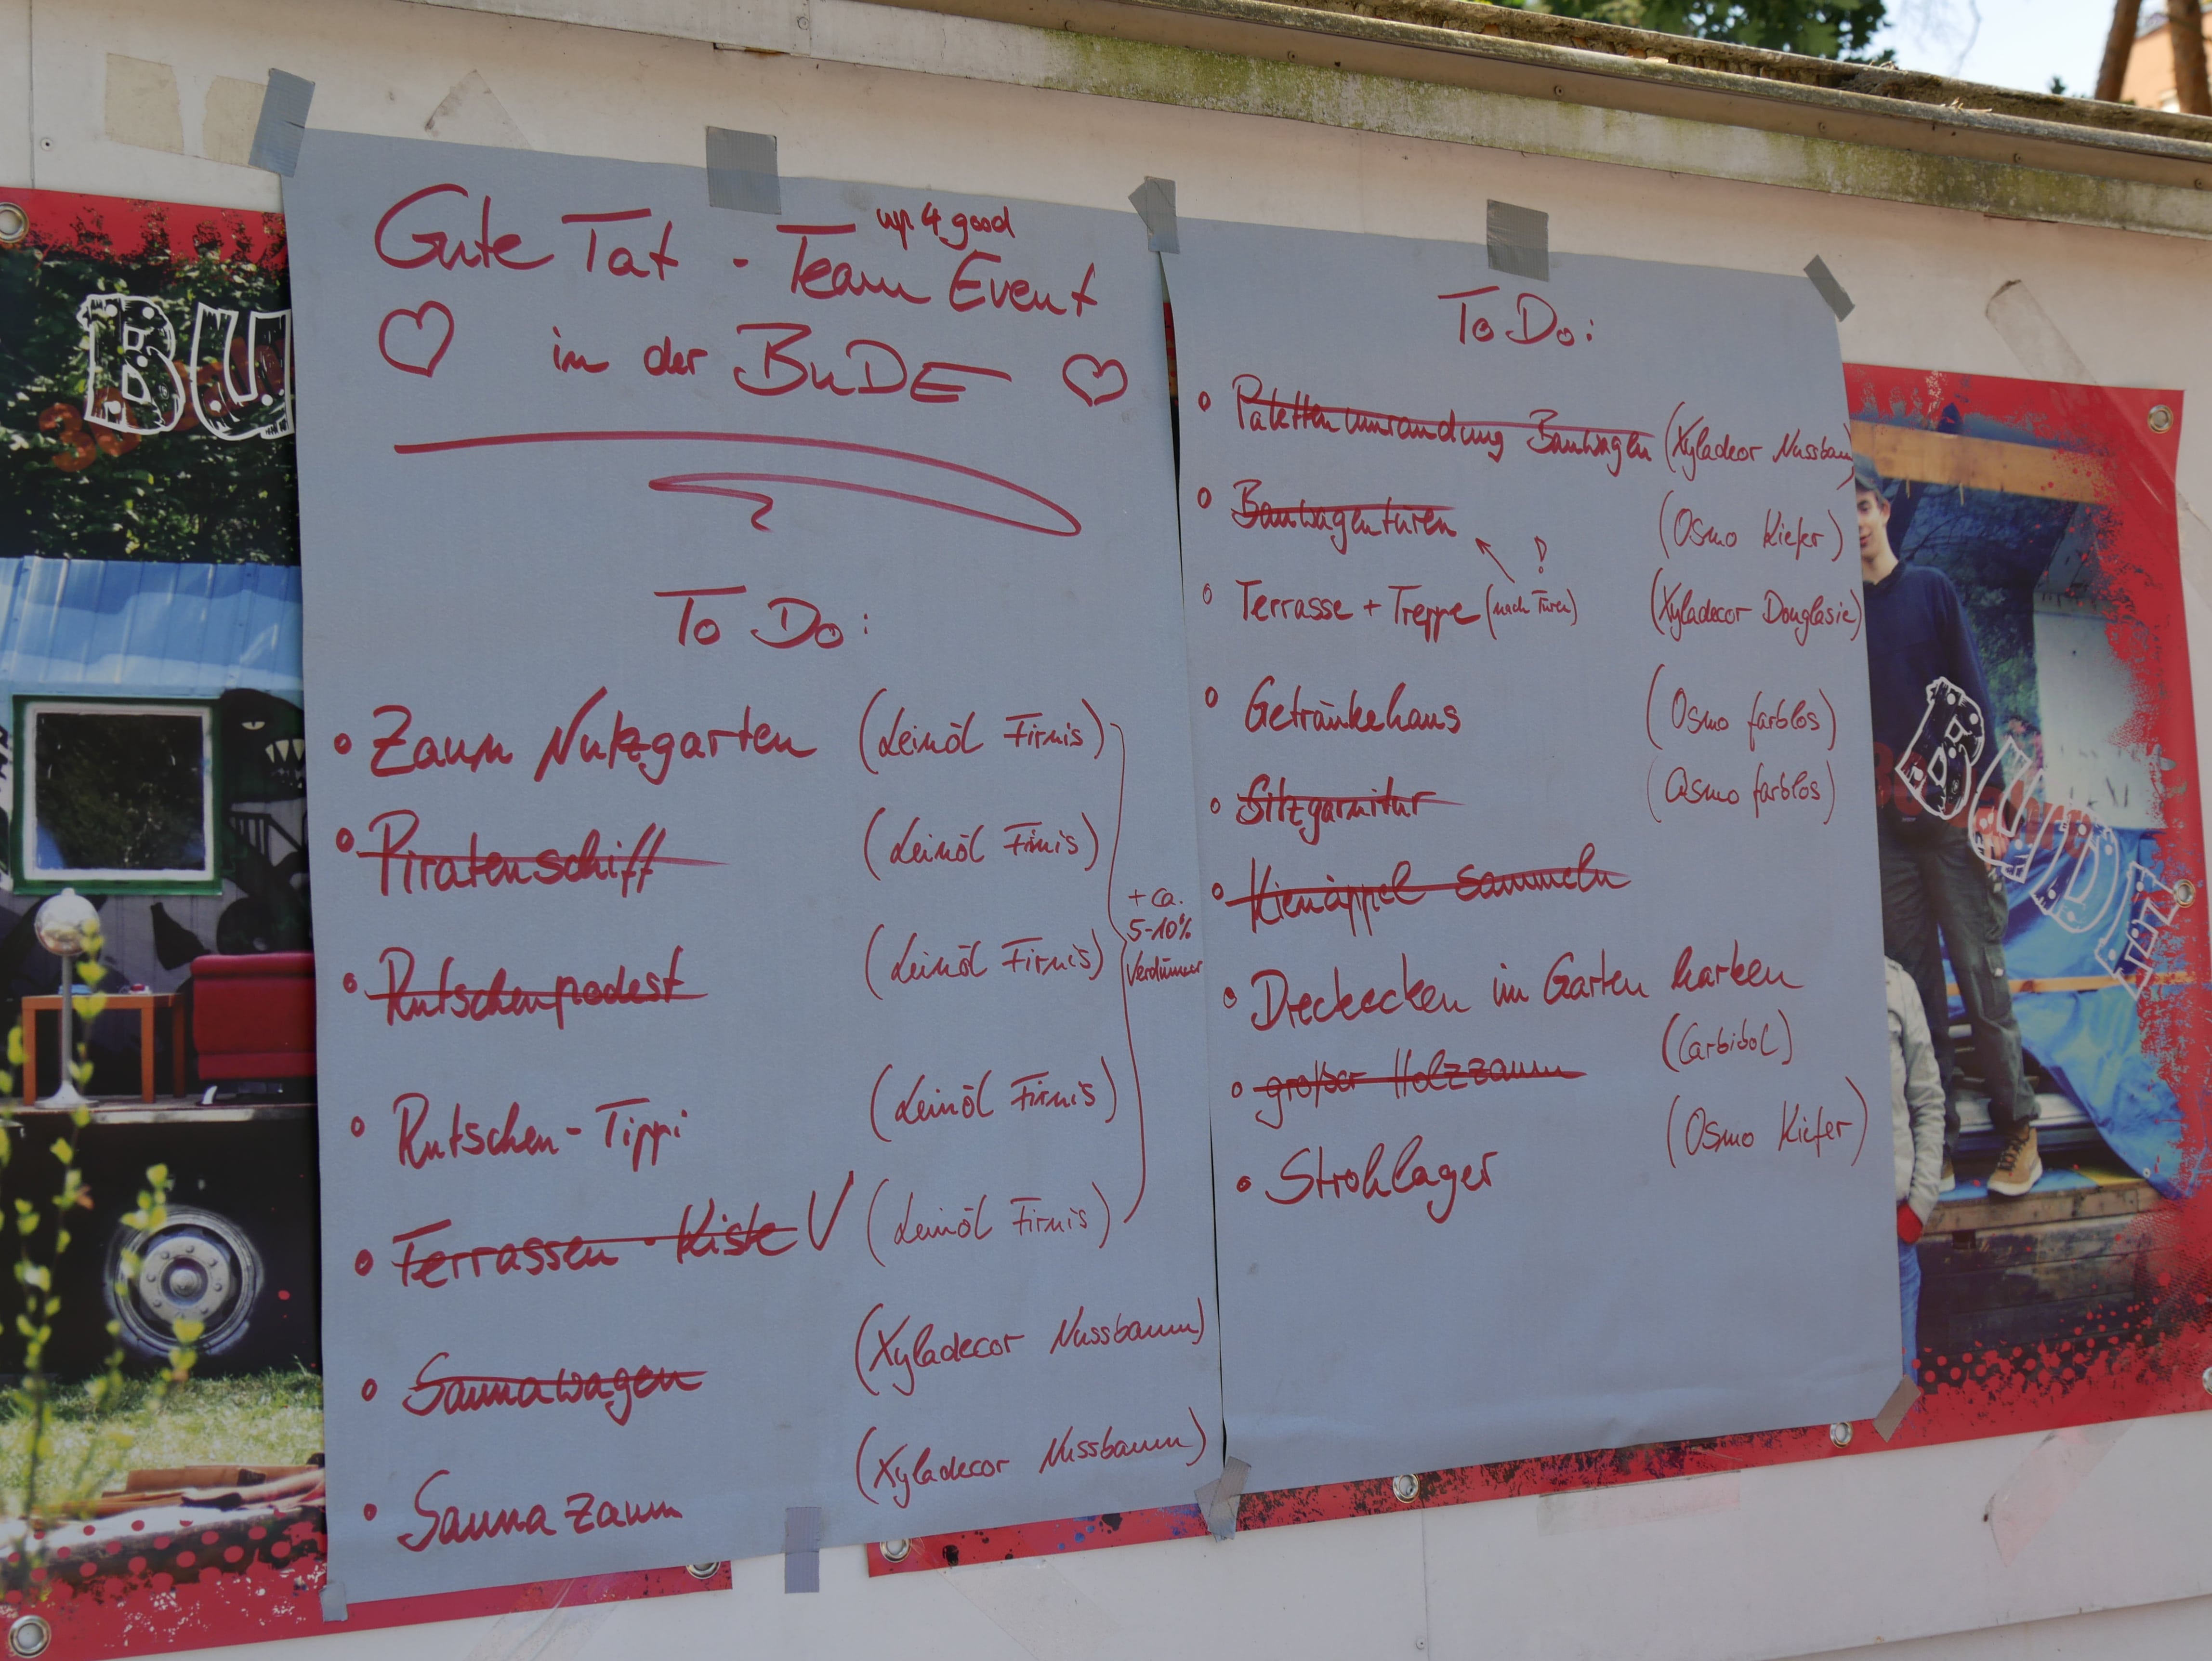 up 4 good
Gute Tat - Team Event
in der BuDE
To Do:
Zaun Nutzgarten (Leinöl Firnis)
Piratenschiff (Leinöl Firnis)
Rutschenpodest (Leinöl Firnis)
+ ca.
5-10%
Verdünner
Rutschen-Tippi (Leinöl Firnis)
Terrassen-Kiste V (Leinöl Firnis)
Saunawagen (Xyladecor Nussbaum)
Sauna zaun (Xyladecor Nussbaum)
To Do:
Palettenumrandung Bauwagen (Xyladecor Nussbaum)
Bauwagentüren (Osmo Kiefer)
!
Terrasse + Treppe (nach Türen) (Xyladecor Douglasie)
Getränkehaus (Osmo farblos)
Sitzgarnitur (Osmo farblos)
Kienäppel sammeln
Dreckecken im Garten harken
großer Holzzaun (Carbibol)
Strohlager (Osmo Kiefer)
BU
BUDE